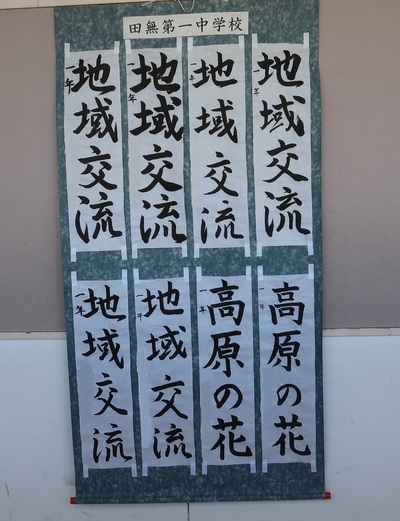 田無第一中学校
一年
地域交流
一年
地域交流
一年
地域交流
一年
地域交流
一年
高原の花
一年
高原の花
一年
地域交流
一年
地域交流